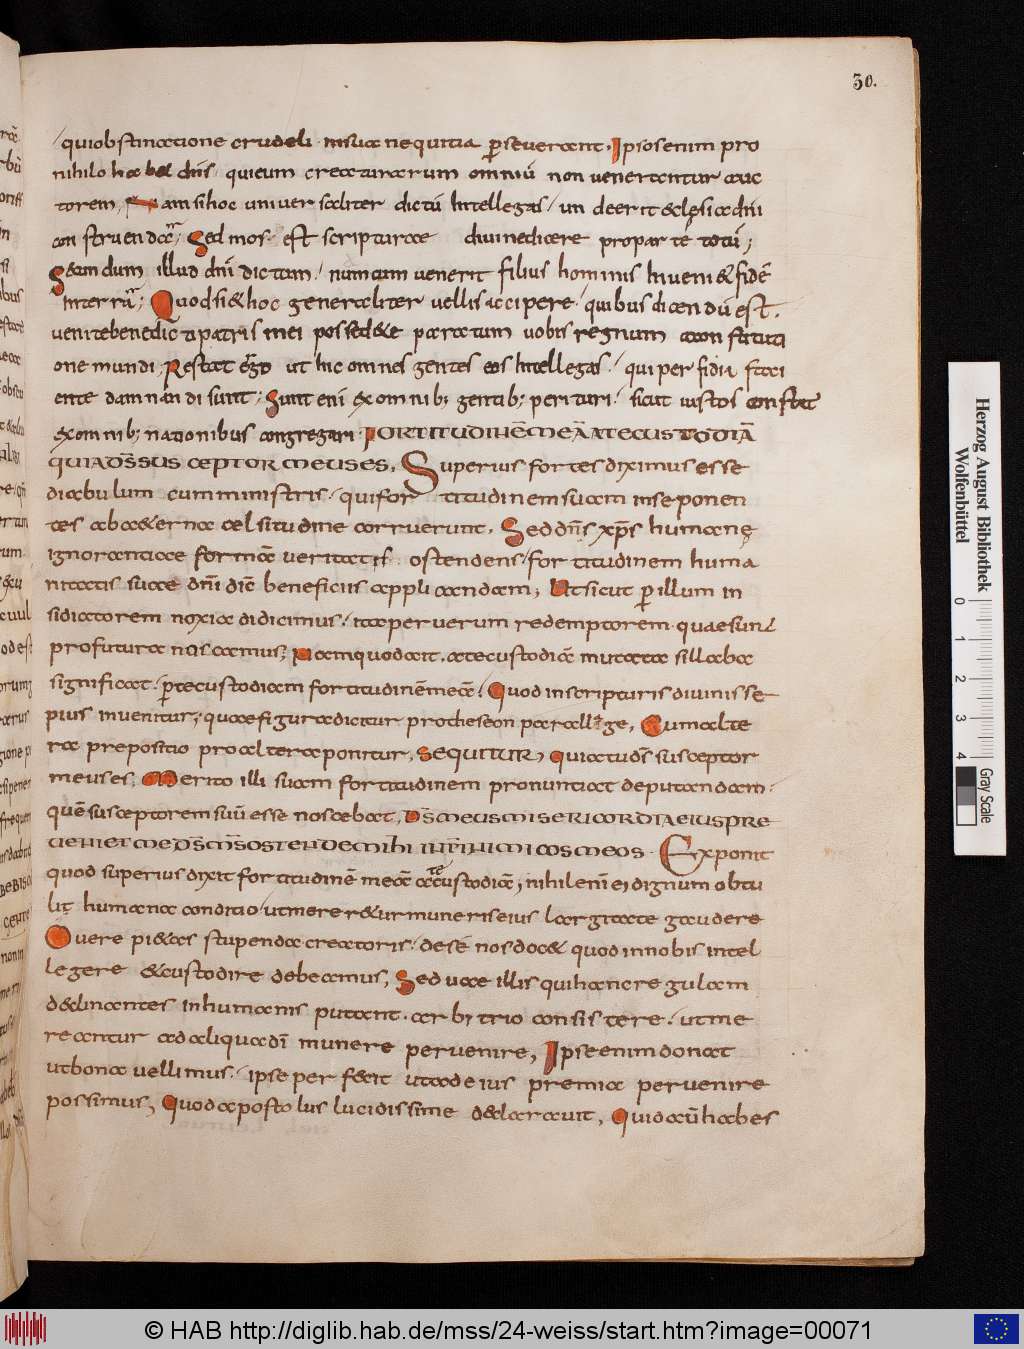 30.
quiobstinatione crudeli · insua nequitia p̱severant. Ipsosenim pro
nihilo habet dn̄s· quieum creaturarum omniū non venerantur auc
torem, Nam sihoc universaliter dictū Intellegas · un deerit &clesiadn̄i
con struenda; Sed mos· est scripturae divinedicere propar tē totū;
Secundum illud dn̄i dictum · num cum venerit filius hominis Inveni&fidē
Interrā; Quodsi&hoc generaliter vellisaccipere · quibus dicendū est.
venitebenedicti patris mei possed&e paratum vobis regnum aconstituti
one mundi; Restat ergo ut hic omnes gentes eos Intellegas · qui perfidia faci
ente damnandi sunt; Sunt enī &x omnib; gentib; perituri · sicut iustos constat
&x omnib; nationibus congregari · FORTITUDINĒ MEĀ AT ECUSTODIĀ
QUIADS̄SUSCEPTORMEUSES, Superius fortes diximus esse
diabulum cum ministris · quifor titudinemsuam inseponen
tes abaeterna celsitudine corruerunt. Seddn̄s xp̄s humanę
ignorantiae formā veritatis ostendens · for titudinem huma
nitatis suae dn̄i dīc beneficiis applicandam; Utsicut p̱illum in
sidiatorem noxia didicimus · itaperverum redemptorem · quaesunt
profutura noscamus; Namquodait · atecustodiā mutata sillaba
significat · p̱tecustodiam fortitudinēmeā. Quod inscripturis divinis se
pius invenitur; quaefiguradicitur procheseon parallage, Cumalte
ra prepositio proalteraponitur, SEQUITUR, quiatuds̄ susceptor
meuses. Merito illi suam fortitudinem pronuntiat deputandam·
quēsusceptoremsuū esse noscebat, DS̄MEUSMISERICORDIAEIUSPRE
VENIET MEDS̄MS̄OSTENDEMIHI INTERINIMICOSMEOS · Exponit
quod superius dixit fortitudinē meā atecustodiā, nihilenī ei dignum obtu
lit humana conditio · utmerer&ur muneriseius largitate gaudere
O vere pi&as stupenda creatoris · desē nosdoc& quod innobis intel
legere &custodire debeamus, Sed vae illis quihancregulam
declinantes inhumanis putant · arbitrio consistere · utme
reantur adaliquodī munere pervenire, Ipse enim donat
utbona vellimus · ipse perfecit utadeius premia pervenire
possimus, Quodapostolus lucidissime declaravit, Quidaūhabes
Herzog August Bibliothek
Wolfenbüttel
0 1 2 3 4
Gray Scale
© HAB http://diglib.hab.de/mss/24-weiss/start.htm?image=00071